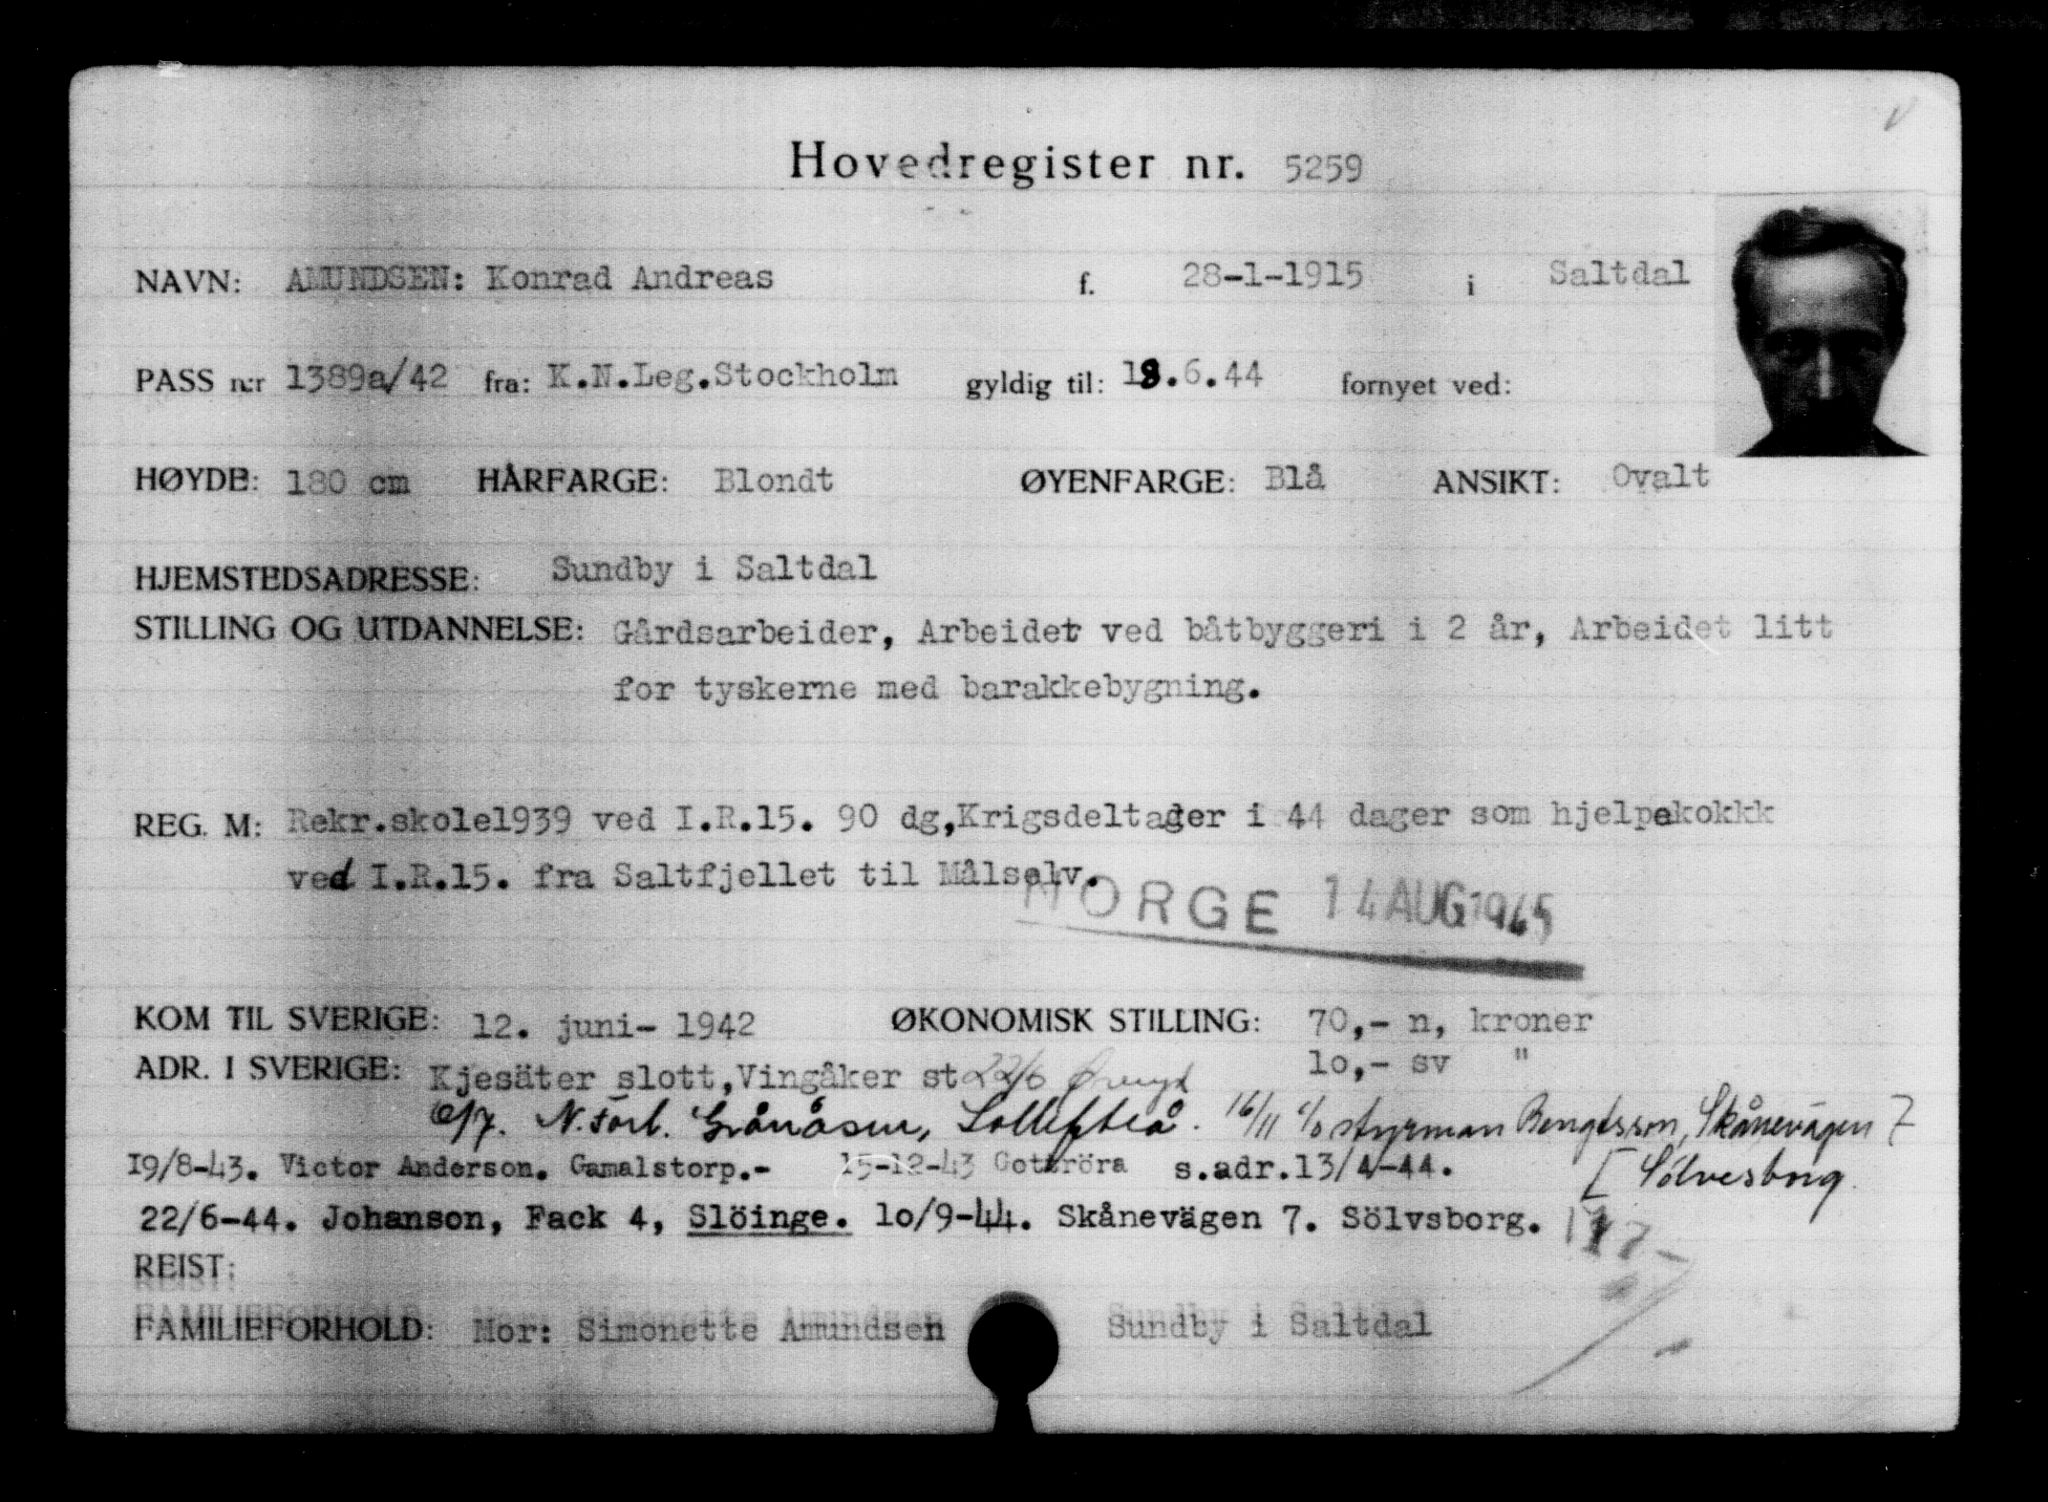 Hovedregister nr. 5259
NAVN: AMUNDSEN: Konrad Andreas f. 28-1-1915 i Saltdal
PASS n:r 1389a/42 fra: K.N.Leg.Stockholm gyldig til: 18.6.44 fornyet ved:
HØYDE: 180 cm HÅRFARGE: Blondt ØYENFARGE: Blå ANSIKT: Ovalt
HJEMSTEDSADRESSE: Sundby i Saltdal
STILLING OG UTDANNELSE: Gårdsarbeider, Arbeidet ved båtbyggeri i 2 år, Arbeidet litt
for tyskerne med barakkebygning.
REG. M: Rekr.skole1939 ved I.R.15. 90 dg,Krigsdeltager i 44 dager som hjelpekokkk
ved I.R.15. fra Saltfjellet til Målselv.
NORGE 14 AUG 1945
KOM TIL SVERIGE: 12. juni- 1942 ØKONOMISK STILLING: 70,- n, kroner
ADR. I SVERIGE: Kjesäter slott,Vingåker st 22/6 lo,- sv "
N. Förl. Grånåsen, Sollefteå. 16/11 c/o styrman Bengtsson, Skånevägen 7
[ Sölvesborg.
19/8-43. Victor Anderson. Gamalstorp.- 15-12-43 Gottröra s.adr.13/4-44.
22/6-44. Johanson, Fack 4, Slöinge. lo/9-44. Skånevägen 7. Sölvsborg.
REIST:
FAMILIEFORHOLD: Mor: Simonette Amundsen Sundby i Saltdal